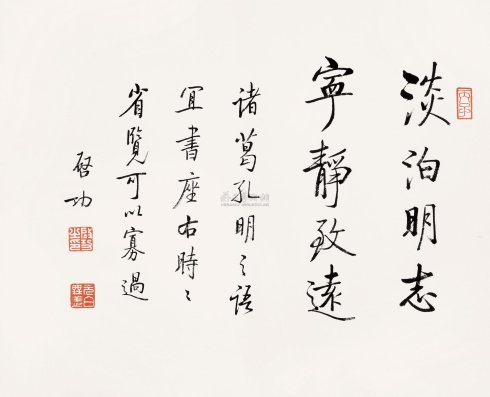 淡泊明志
寧靜致遠
诸葛孔明之语
宜書座右時〻
省覽可以寡過
啓功